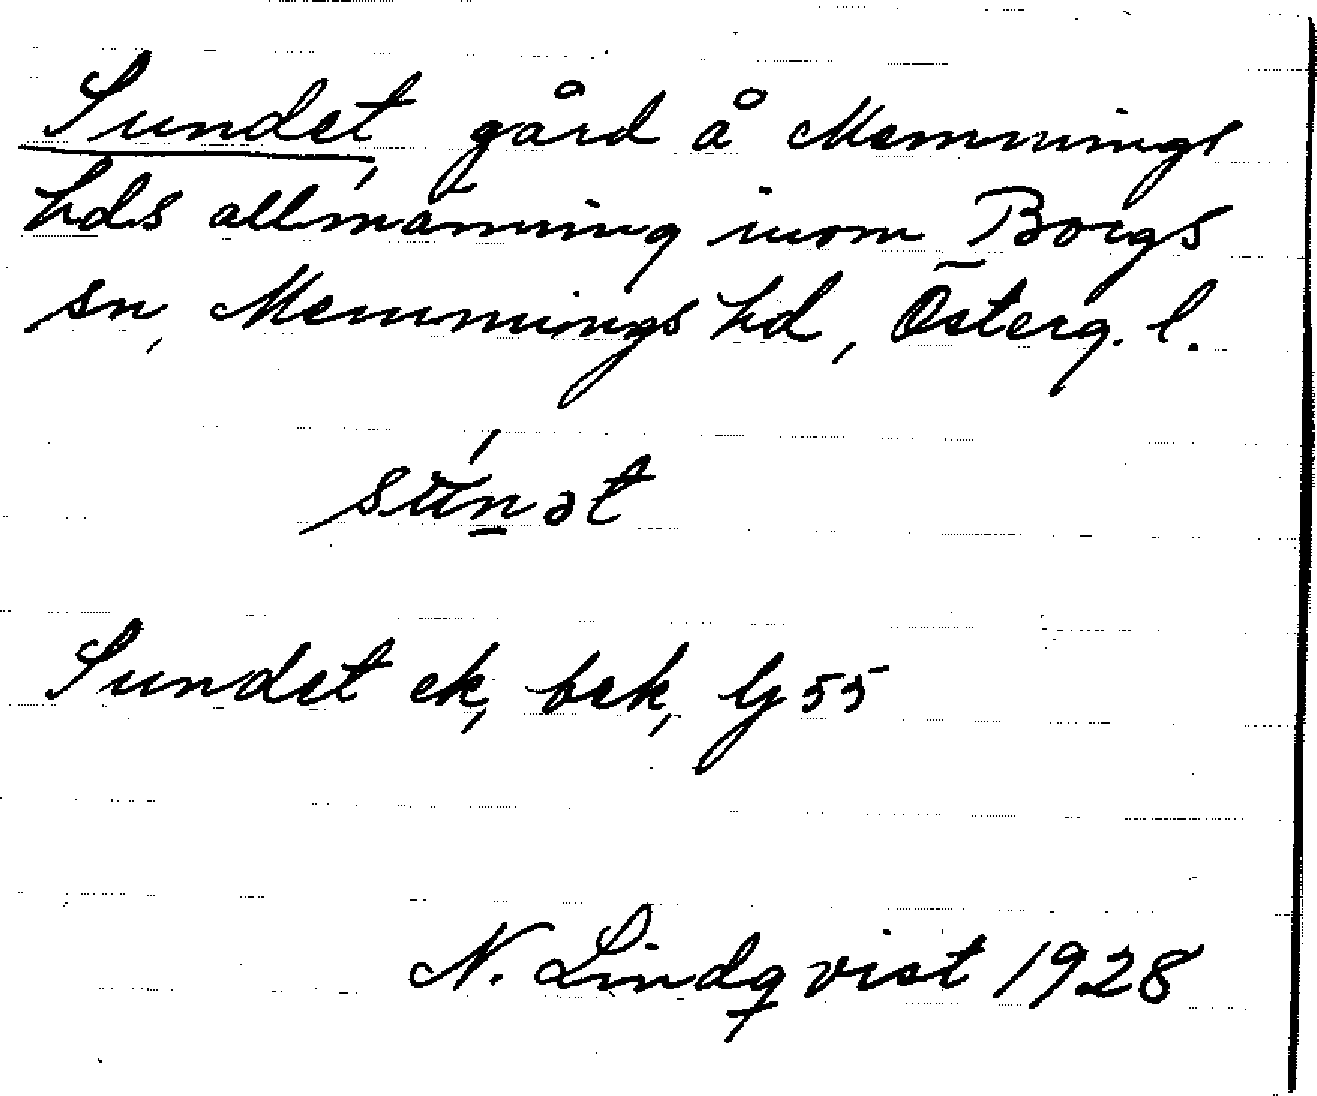 Sundet, gård å Memmings
hds allmänning inom Borgs
sn, Memmings hd, Österg. l.
sún̲ət
Sundet ek, bek, Gj 55
N. Lindqvist 1928